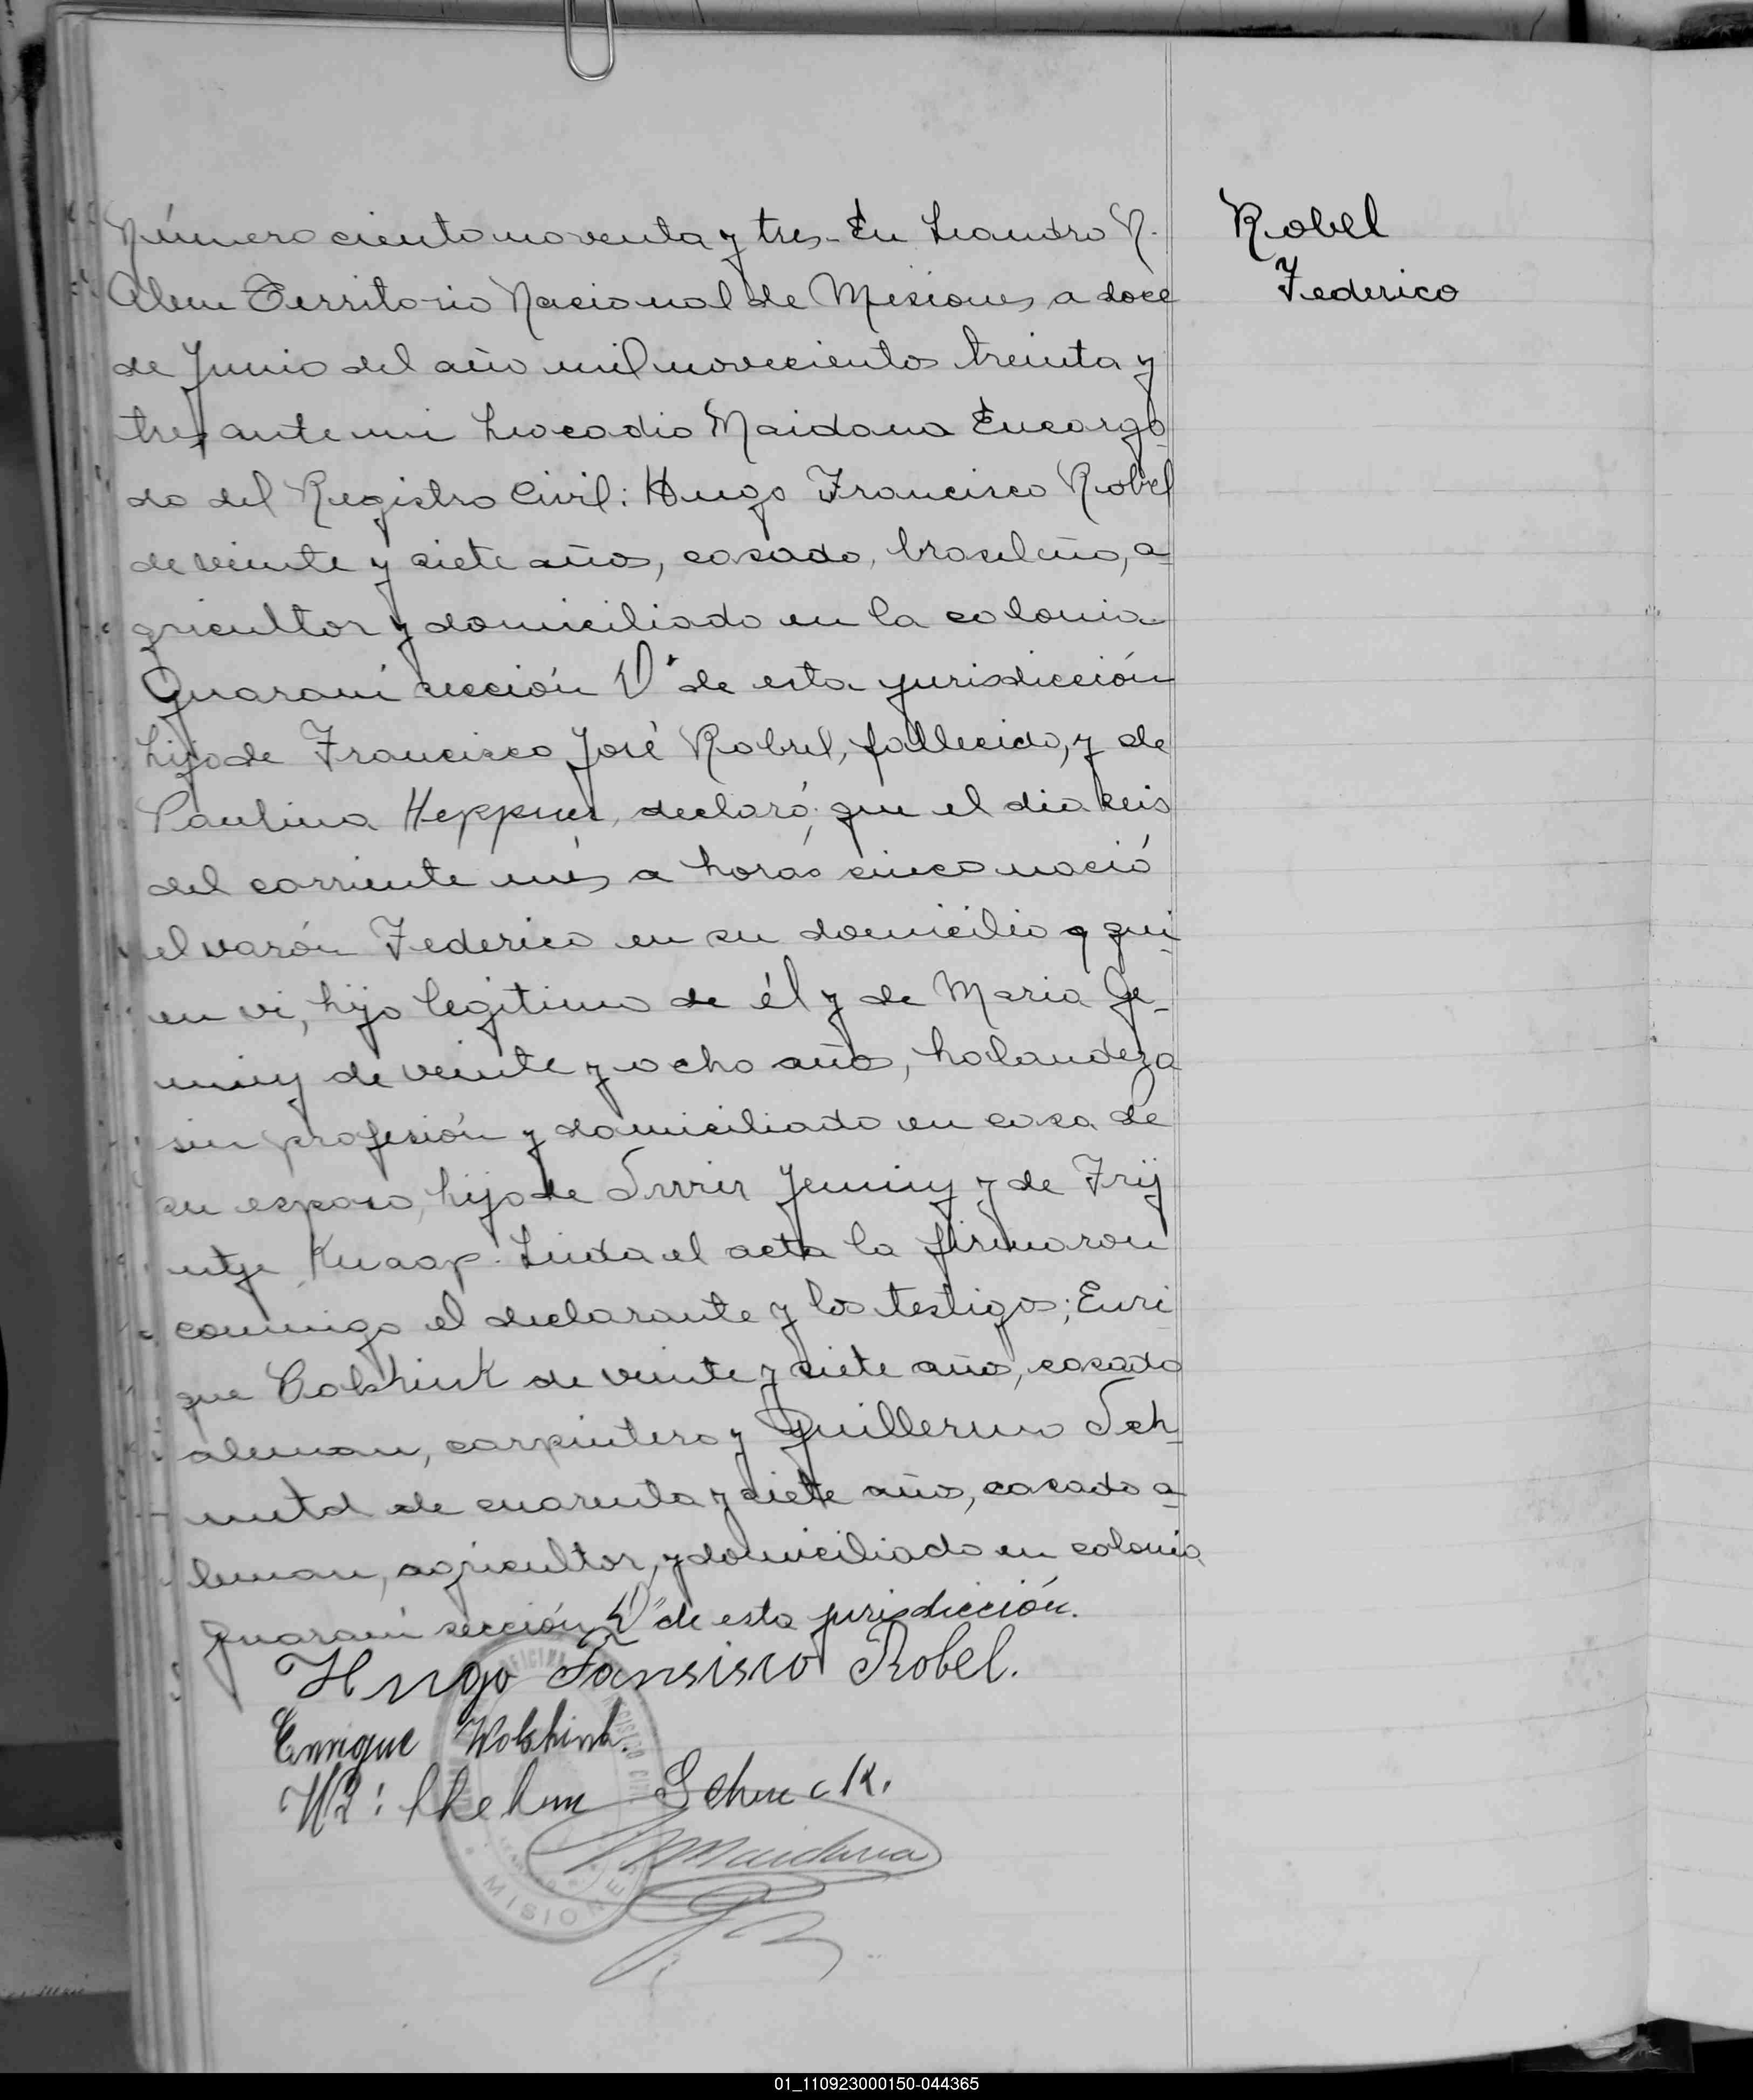 Número ciento noventa y tres. En Leandro N.
Alem Territorio Nacional de Misiones, a doce
de Junio del año mil novecientos treinta y
tres ante mi Leocadio Maidana Encarga-
do del Registro Civil: Hugo Francisco Robel
de veinte y siete años, casado, brasileño, a-
gricultor y domiciliado en la colonia
Guaraní sección Vª de esta yurisdicción
hijo de Francisco José Robel, fallecido, y de
Paulina Heppner, declaró: que el dia seis
del corriente més a horas cinco nació
el varón Federico en su domicilio a qui-
en vi, hijo legítimo de él y de Maria Ge-
nniy de veinte y ocho años, holandeza
sin profesión y domiciliada en casa de
su esposo, hija de Yenniy y de Frij
ntje Knaap. Leida el acta la firmaron
conmigo el declarante y los testigos; Enri-
que Volskink de veinte y siete años, casado
aleman, carpintero y Guillermo Sch-
de cuarenta y siete años, casado a-
leman, agricultor, y domiciliado en colonia
Guaraní sección Vª de esta jurisdicción.
Hugo Fansisco Robel.
Enrique Wolskink.
Wilhelm Schuck.
Maidana
OFICINA REGISTRO CIVIL
MISIONES
Robel
Federico
01_110923000150-044365